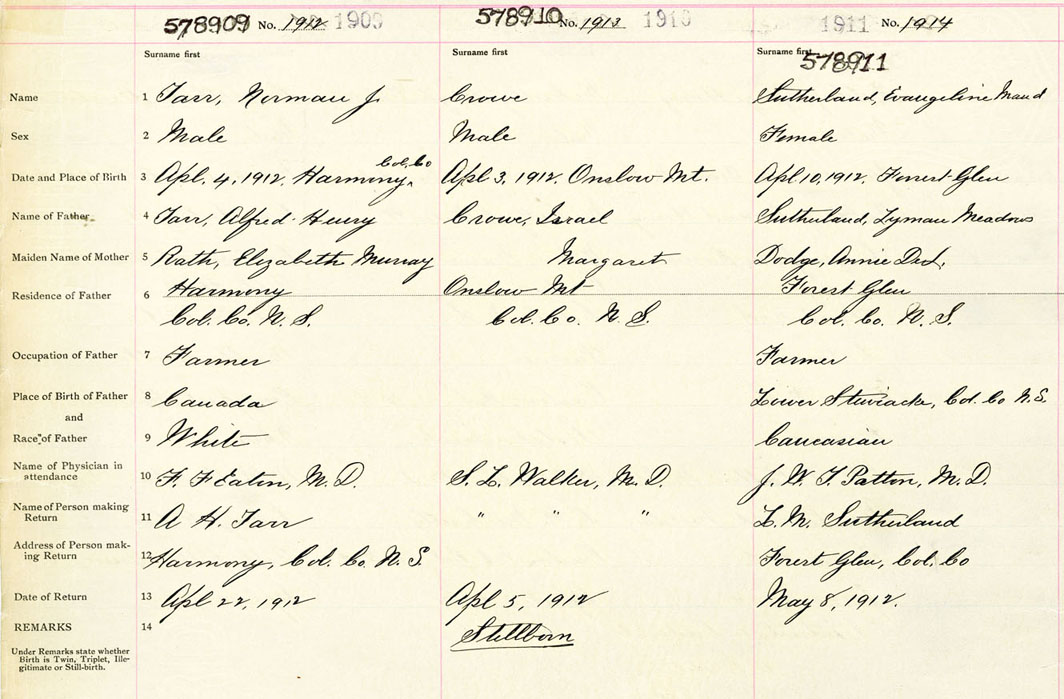 578909 No. 1912 1909 578910 No. 1913 1910 1911 No. 1914
Surname first Surname first Surname first
578911
Name 1 Tarr, Norman J. Crowe Sutherland, Evangeline Maud
Sex 2 Male Male Female
Col. Co
Date and Place of Birth 3 Apl. 4, 1912, Harmony ^ Apl 3, 1912, Onslow Mt. Apl 10, 1912, Forrest Glen
Name of Father 4 Tarr, Alfred Henry Crowe, Israel Sutherland, Lyman Meadows
Maiden Name of Mother 5 Rath, Elizabeth Murray Margaret Dodge, Annie
Residence of Father 6 Harmony Onslow Mt Forest Glen
Col. Co. N. S. Col. Co. N. S. Col. Co. N. S.
Occupation of Father 7 Farmer Farmer
Place of Birth of Father 8 Canada Lower Stewiacke, Col. Co N. S.
and
Race of Father 9 White Caucasian
Name of Physician in
attendance 10 F. F Eaton, M. D. S. L. Walker, M. D. J. W. T Patton, M. D.
Name of Person making
Return 11 A H. Tarr " " " L. M. Sutherland
Address of Person mak-
ing Return 12 Harmony, Col. Co. N. S. Forest Glen, Col. Co
Date of Return 13 Apl 22, 1912 Apl 5, 1912 May 8, 1912.
REMARKS 14 Stillborn
Under Remarks state whether
Birth is Twin, Triplet, Ille-
gitimate or Still-birth.